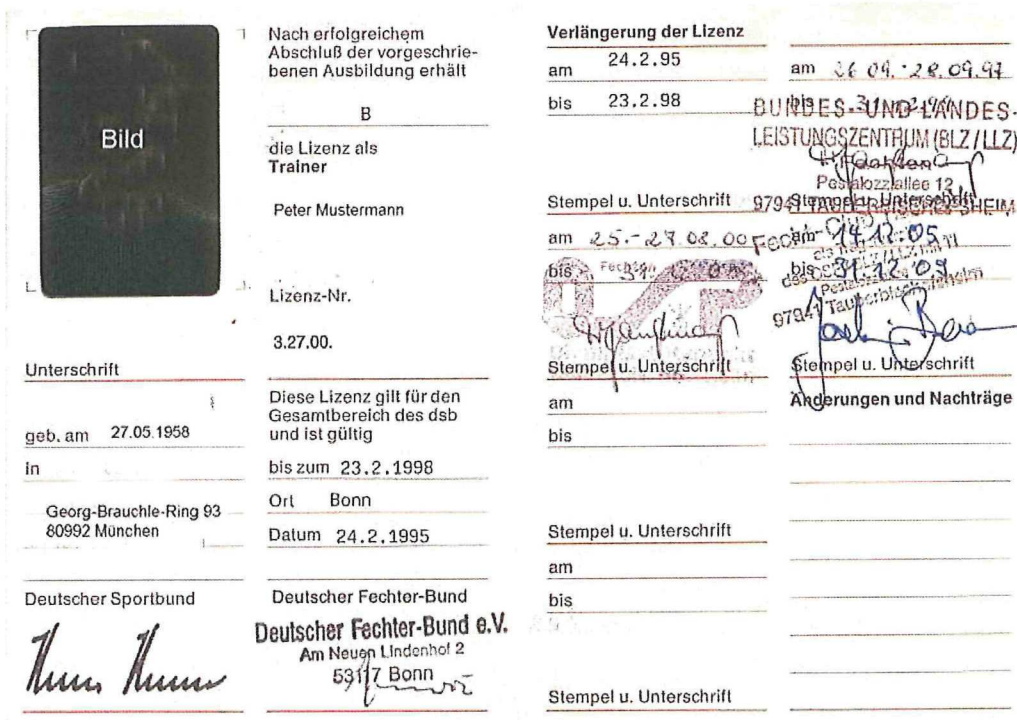 Bild
Unterschrift
geb. am 27.05.1958
in
Georg-Brauchle-Ring 93
80992 München
Deutscher Sportbund
Nach erfolgreichem
Abschluß der vorgeschrie-
benen Ausbildung erhält
B
die Lizenz als
Trainer
Peter Mustermann
Lizenz-Nr.
3.27.00.
Diese Lizenz gilt für den
Gesamtbereich des dsb
und ist gültig
bis zum 23.2.1998
Ort Bonn
Datum 24.2.1995
Deutscher Fechter-Bund
Deutscher Fechter-Bund e.V.
Am Neuen Lindenhof 2
53117 Bonn
Verlängerung der Lizenz
am 24.2.95
bis 23.2.98
Stempel u. Unterschrift
am 25.-27.08.00
bis
Stempel u. Unterschrift
am
bis
Stempel u. Unterschrift
am
bis
Stempel u. Unterschrift
am 26.09.-28.09.97
bis
BUNDES- UND LANDES-
LEISTUNGSZENTRUM (BLZ / LLZ)
Pestalozziallee 12
97941 TAUBERBISCHOFSHEIM
Stempel u. Unterschrift
am 14.12.05
bis 31.12.09
97941 Tauberbischofsheim
Stempel u. Unterschrift
Änderungen und Nachträge